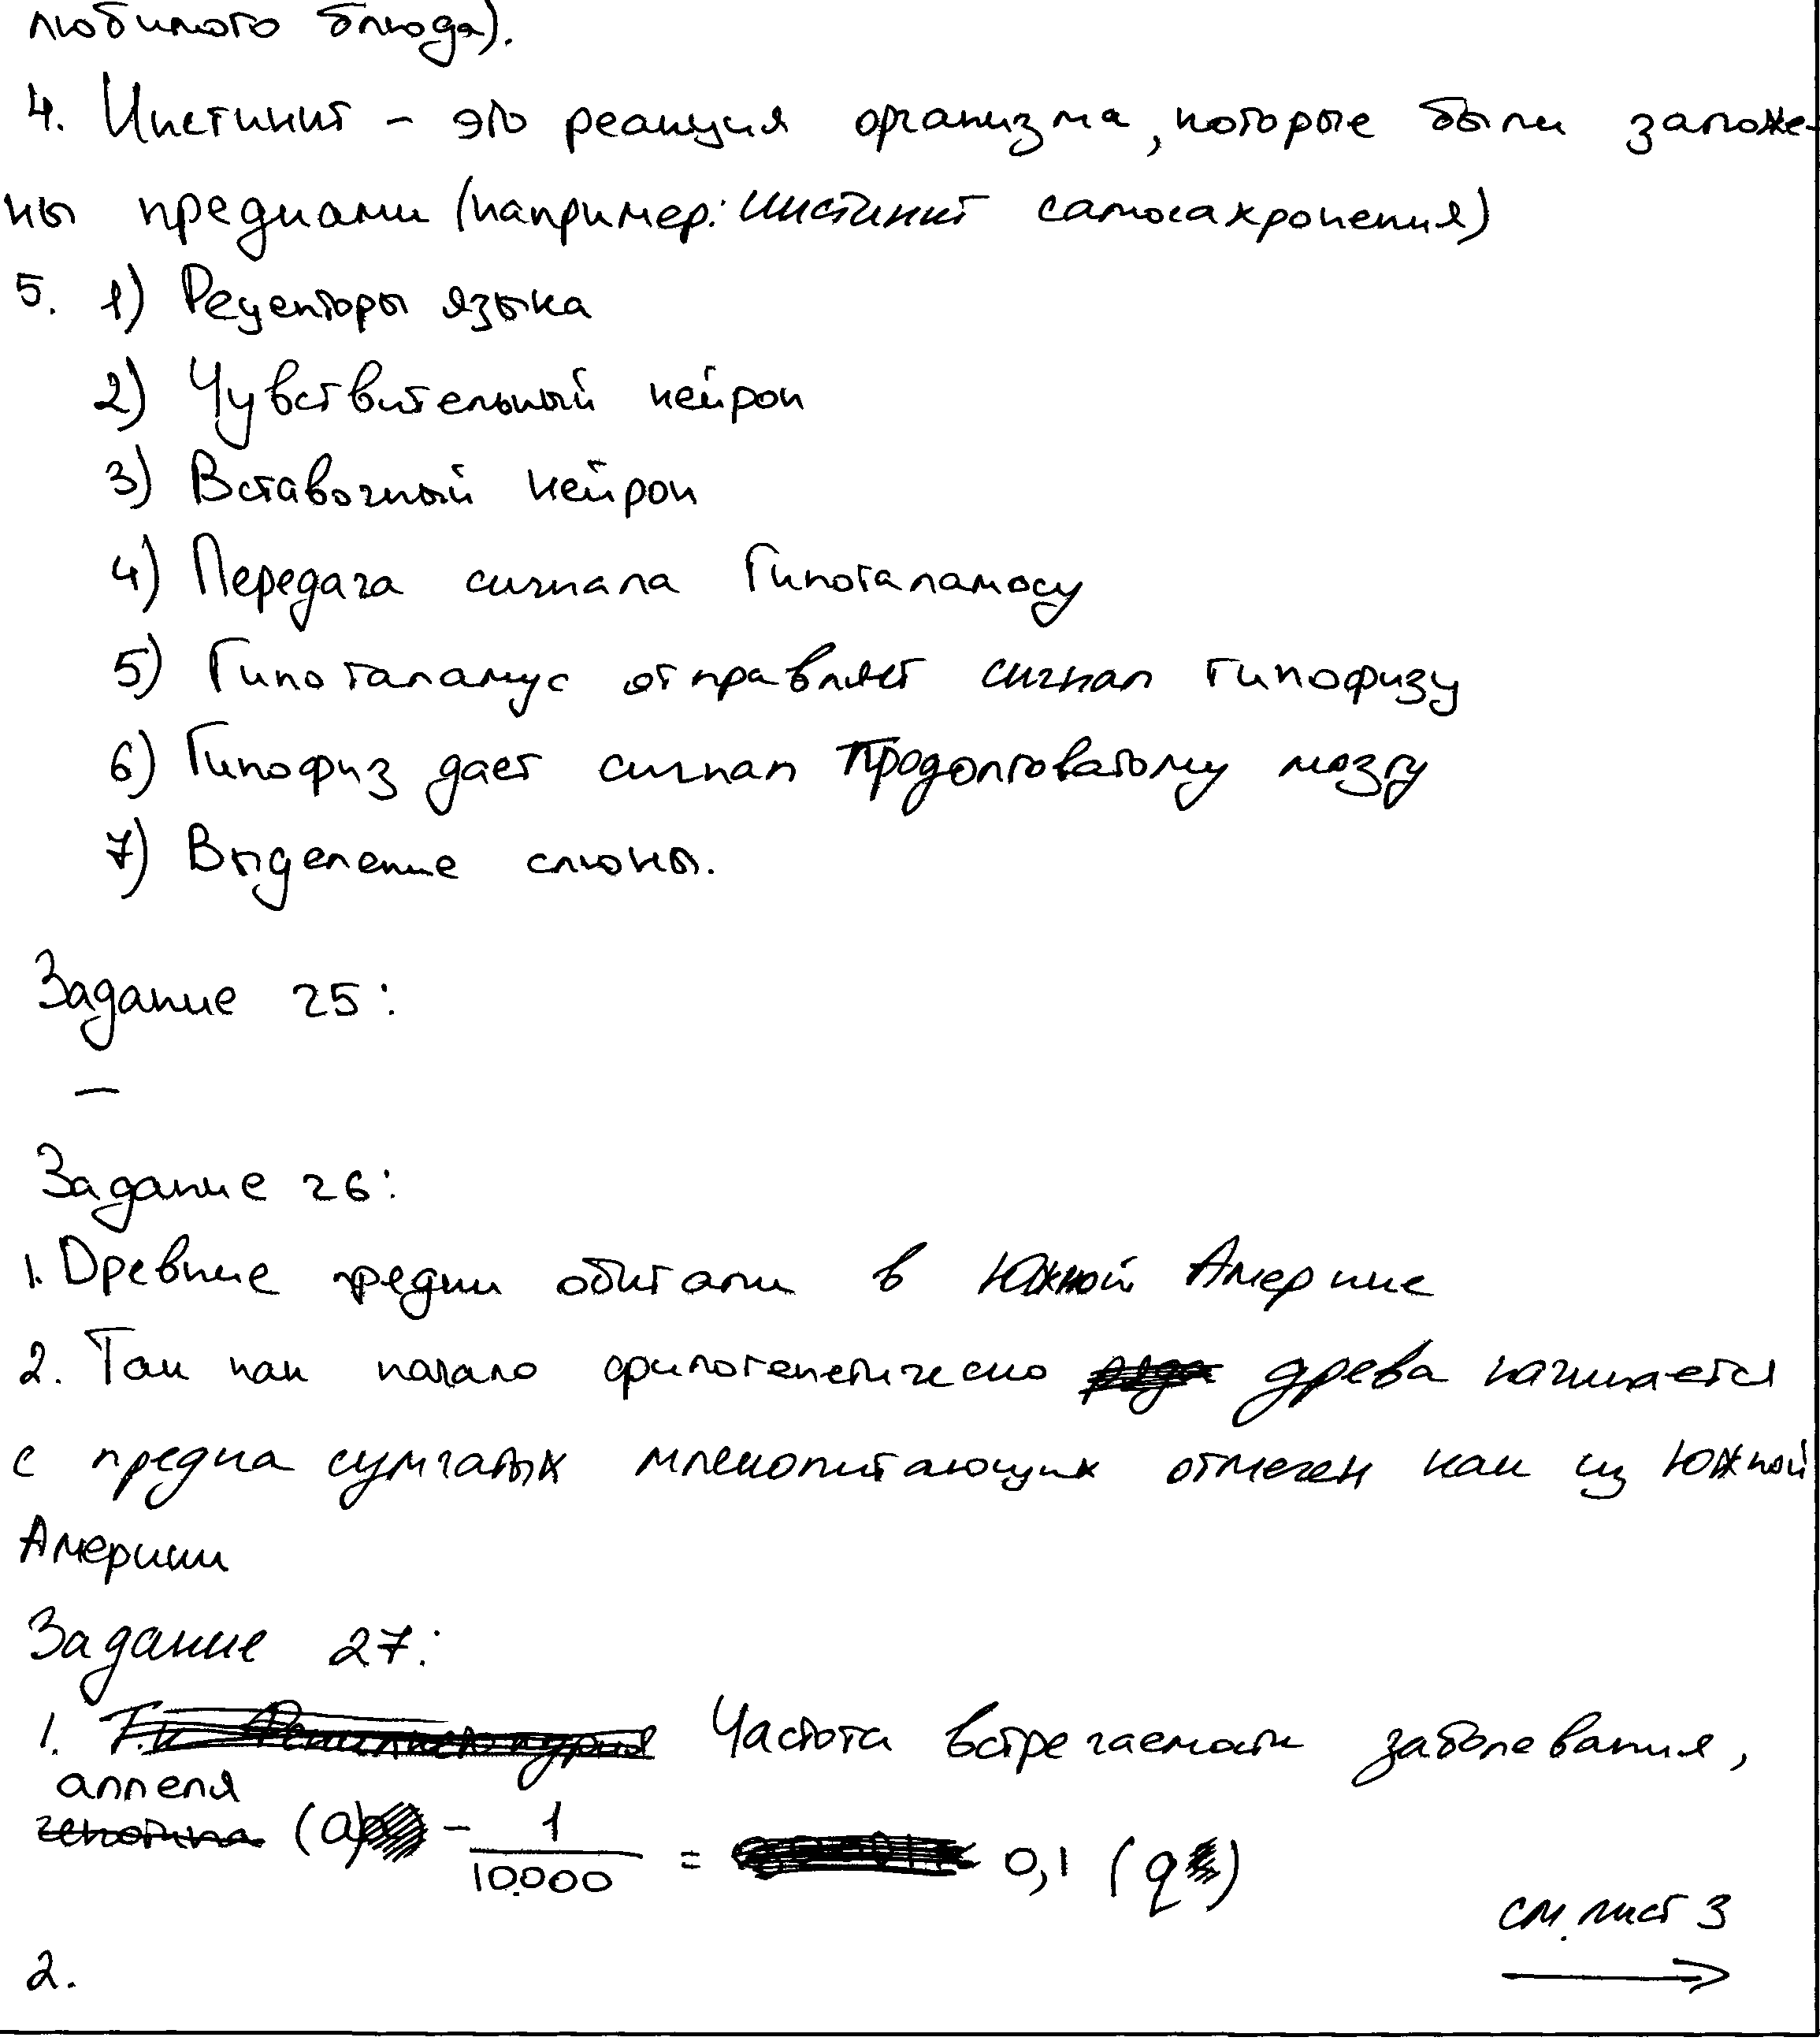 любимого блюда).
4. Инстинкт - это реакция организма, которые были заложе-
ны предками (например: инстинкт самосахронения)
5. 1) Рецепторы языка
2) Чувствительный нейрон
3) Вставочный нейрон
4) Передача сигнала Гипоталамосу
5) Гипоталамус отправляет сигнал гипофизу
6) Гипофиз дает сигнал Продолговатому мозгу
7) Выделение слюны.
Задание 25:
–
Задание 26:
1. Древние предки обитали в Южной Америке
2. Так как начало филогенетическо древа начинается
с предка сумчатых млекопитающих отмечен как из Южной
Америки
Задание 27:
1. Частота встречаемости заболевания,
аллеля
(a) - 1/10.000 = 0,1 (q)
см. лист 3
2.